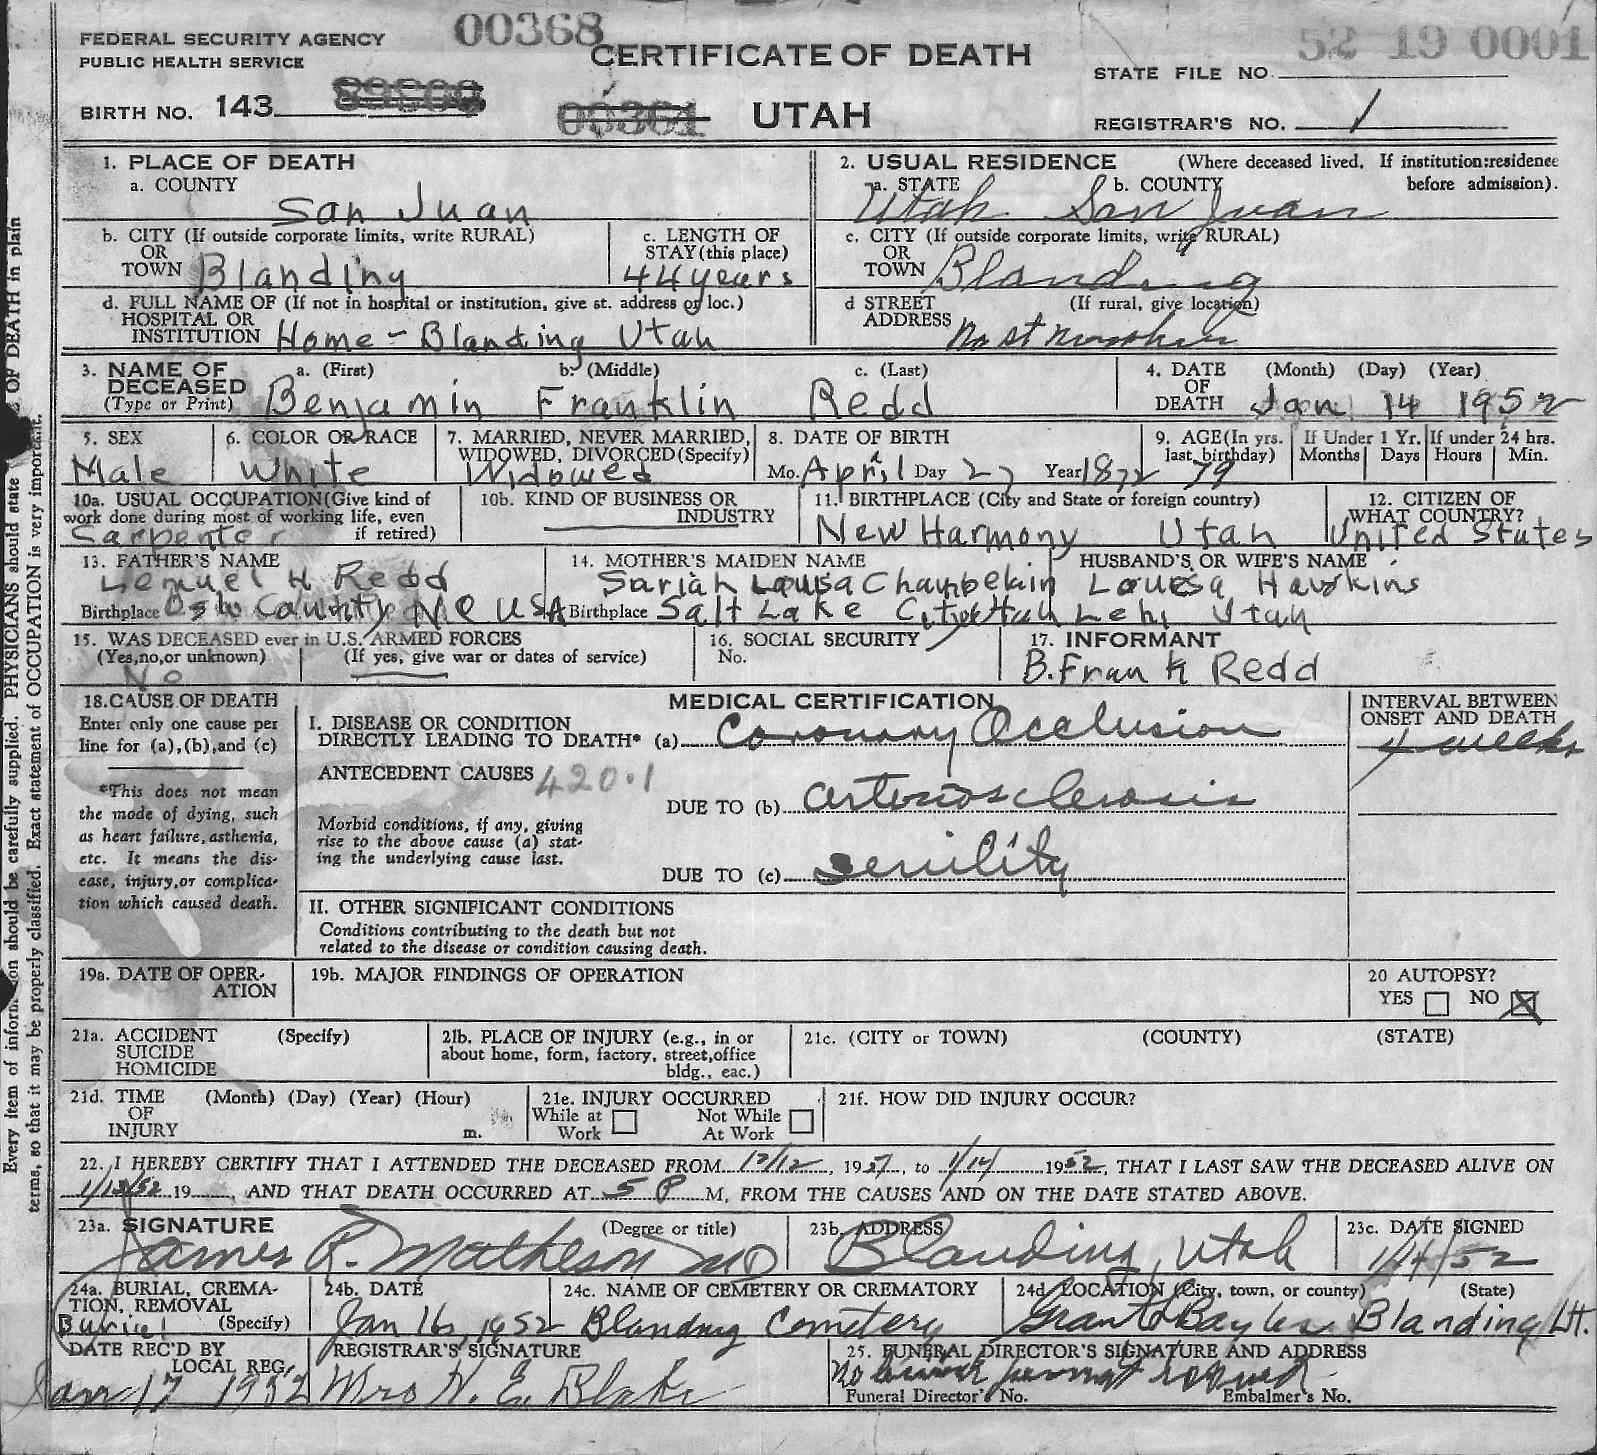 FEDERAL SECURITY AGENCY
PUBLIC HEALTH SERVICE
00368
CERTIFICATE OF DEATH
52 19 0001
STATE FILE NO.
BIRTH NO. 143
00361
UTAH
REGISTRAR'S NO. 1
1. PLACE OF DEATH
a. COUNTY
San Juan
2. USUAL RESIDENCE (Where deceased lived. If institution:residence before admission).
a. STATE b. COUNTY
Utah San Juan
b. CITY (If outside corporate limits, write RURAL)
OR
TOWN Blanding
c. LENGTH OF
STAY (this place)
44 years
c. CITY (If outside corporate limits, write RURAL)
OR
TOWN Blanding
d. FULL NAME OF (If not in hospital or institution, give st. address or loc.)
HOSPITAL OR
INSTITUTION Home - Blanding Utah
d STREET (If rural, give location)
ADDRESS No st
3. NAME OF
DECEASED
(Type or Print)
a. (First) b. (Middle) c. (Last)
Benjamin Franklin Redd
4. DATE (Month) (Day) (Year)
OF
DEATH Jan 14 1952
5. SEX
Male
6. COLOR OR RACE
White
7. MARRIED, NEVER MARRIED,
WIDOWED, DIVORCED (Specify)
Widowed
8. DATE OF BIRTH
Mo. April Day 27 Year 1872
9. AGE (In yrs.
last birthday)
79
If Under 1 Yr.
Months Days
If under 24 hrs.
Hours Min.
10a. USUAL OCCUPATION (Give kind of
work done during most of working life, even
if retired)
Carpenter
10b. KIND OF BUSINESS OR
INDUSTRY
11. BIRTHPLACE (City and State or foreign country)
New Harmony Utah
12. CITIZEN OF
WHAT COUNTRY?
United States
13. FATHER'S NAME
Lemuel H Redd
Birthplace County N C USA
14. MOTHER'S MAIDEN NAME
Sariah Louisa Chambelain
Birthplace Salt Lake City Utah
HUSBAND'S OR WIFE'S NAME
Louesa Hawkins
Lehi Utah
15. WAS DECEASED ever in U.S. ARMED FORCES
(Yes,no,or unknown) (If yes, give war or dates of service)
No
16. SOCIAL SECURITY
No.
17. INFORMANT
B. Frank Redd
18. CAUSE OF DEATH
Enter only one cause per
line for (a),(b),and (c)
*This does not mean
the mode of dying, such
as heart failure, asthenia,
etc. It means the dis-
ease, injury,or complica-
tion which caused death.
MEDICAL CERTIFICATION
I. DISEASE OR CONDITION
DIRECTLY LEADING TO DEATH* (a) Coronary Occlusion
ANTECEDENT CAUSES 420.1
DUE TO (b) arteriosclerosis
Morbid conditions, if any, giving
rise to the above cause (a) stat-
ing the underlying cause last.
DUE TO (c) senility
INTERVAL BETWEEN
ONSET AND DEATH
4 weeks
II. OTHER SIGNIFICANT CONDITIONS
Conditions contributing to the death but not
related to the disease or condition causing death.
19a. DATE OF OPER-
ATION
19b. MAJOR FINDINGS OF OPERATION
20 AUTOPSY?
YES NO X
21a. ACCIDENT (Specify)
SUICIDE
HOMICIDE
21b. PLACE OF INJURY (e.g., in or
about home, form, factory, street,office
bldg., eac.)
21c. (CITY or TOWN) (COUNTY) (STATE)
21d. TIME (Month) (Day) (Year) (Hour)
OF
INJURY m.
21e. INJURY OCCURRED
While at Work
Not While At Work
21f. HOW DID INJURY OCCUR?
22. I HEREBY CERTIFY THAT I ATTENDED THE DECEASED FROM 12/12, 1951, to 1/14 1952, THAT I LAST SAW THE DECEASED ALIVE ON
1/13/52 19, AND THAT DEATH OCCURRED AT 5 P M, FROM THE CAUSES AND ON THE DATE STATED ABOVE.
23a. SIGNATURE (Degree or title)
James R. Matheson MD
23b. ADDRESS
Blanding, Utah
23c. DATE SIGNED
1/14/52
24a. BURIAL, CREMA-
TION, REMOVAL
(Specify)
Burial
24b. DATE
Jan 16, 1952
24c. NAME OF CEMETERY OR CREMATORY
Blanding Cemetery
24d LOCATION (City, town, or county) (State)
Grant L Bayles Blanding Ut.
DATE REC'D BY
LOCAL REG.
Jan 17 1952
REGISTRAR'S SIGNATURE
Mrs H. E. Blake
25. FUNERAL DIRECTOR'S SIGNATURE AND ADDRESS
No permit
Funeral Director's No. Embalmer's No.
Every item of information should be carefully supplied. PHYSICIANS should state OF DEATH in plain
terms, so that it may be properly classified. Exact statement of OCCUPATION is very important.